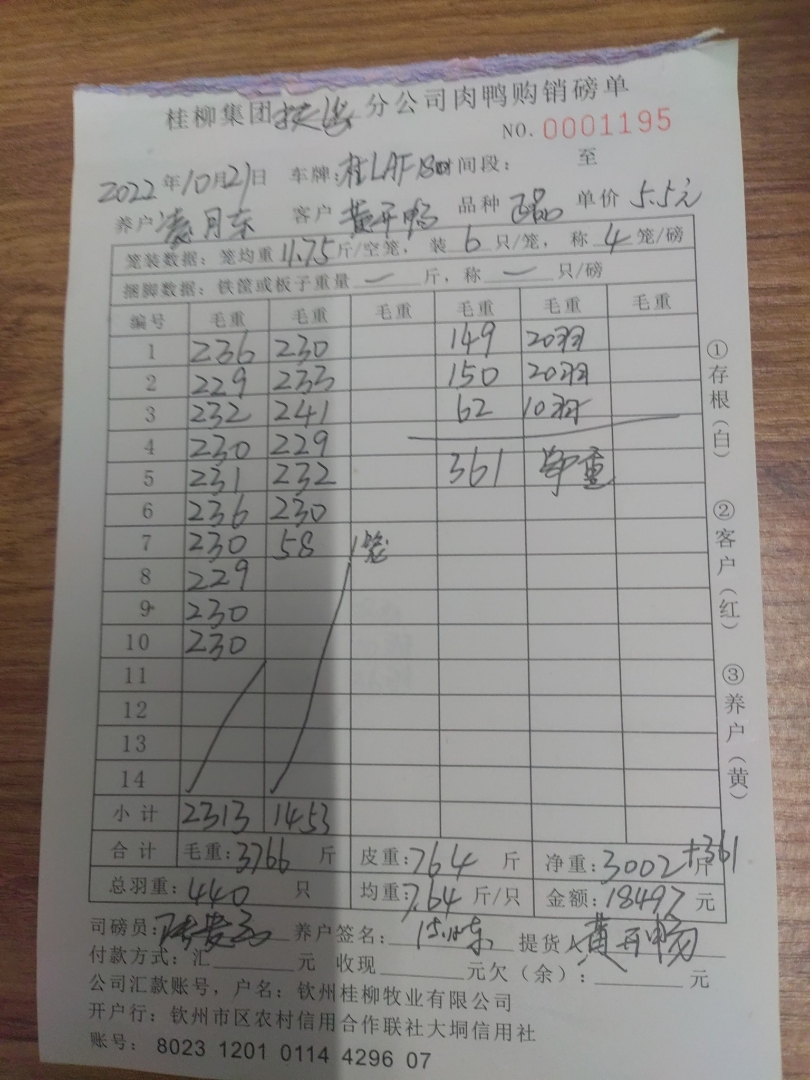 桂柳集团 分公司肉鸭购销磅单
NO. 0001195
2022年10月21日 车牌:桂LAF 时间段: 至
养户 月东 客户 黄开畅 品种 正品 单价 5.5元
笼装数据: 笼均重 11.75 斤/空笼, 装 6 只/笼, 称 4 笼/磅
捆脚数据: 铁筐或板子重量 — 斤, 称 — 只/磅
编号 毛重 毛重 毛重 毛重 毛重 毛重
1 236 230 149 20羽
2 229 233 150 20羽
3 232 241 62 10羽
4 230 229
5 231 232 361 净重
6 236 230
7 230 58 1笼
8 229
9 230
10 230
11
12
13
14
小计 2313 1453
合计 毛重:3766 斤 皮重:764 斤 净重:3002+361 斤
总羽重:440 只 均重:7.64 斤/只 金额:18497 元
司磅员: 养户签名: 提货人 黄开畅
付款方式: 汇 元 收现 元欠(余): 元
公司汇款账号, 户名: 钦州桂柳牧业有限公司
开户行: 钦州市区农村信用合作联社大垌信用社
账号: 8023 1201 0114 4296 07
①存根(白)
②客户(红)
③养户(黄)